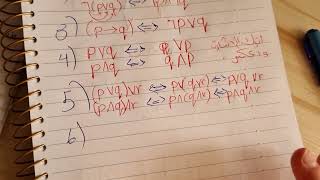 7(p∨q)
3) (p→q) ⇔ 7p∨q
4) p∨q ⇔ q∨p
p∧q ⇔ q∧p
5) (p∨q)∨r ⇔ p∨(q∨r) ⇔ p∨q∨r
(p∧q)∧r ⇔ p∧(q∧r) ⇔ p∧q∧r
6)